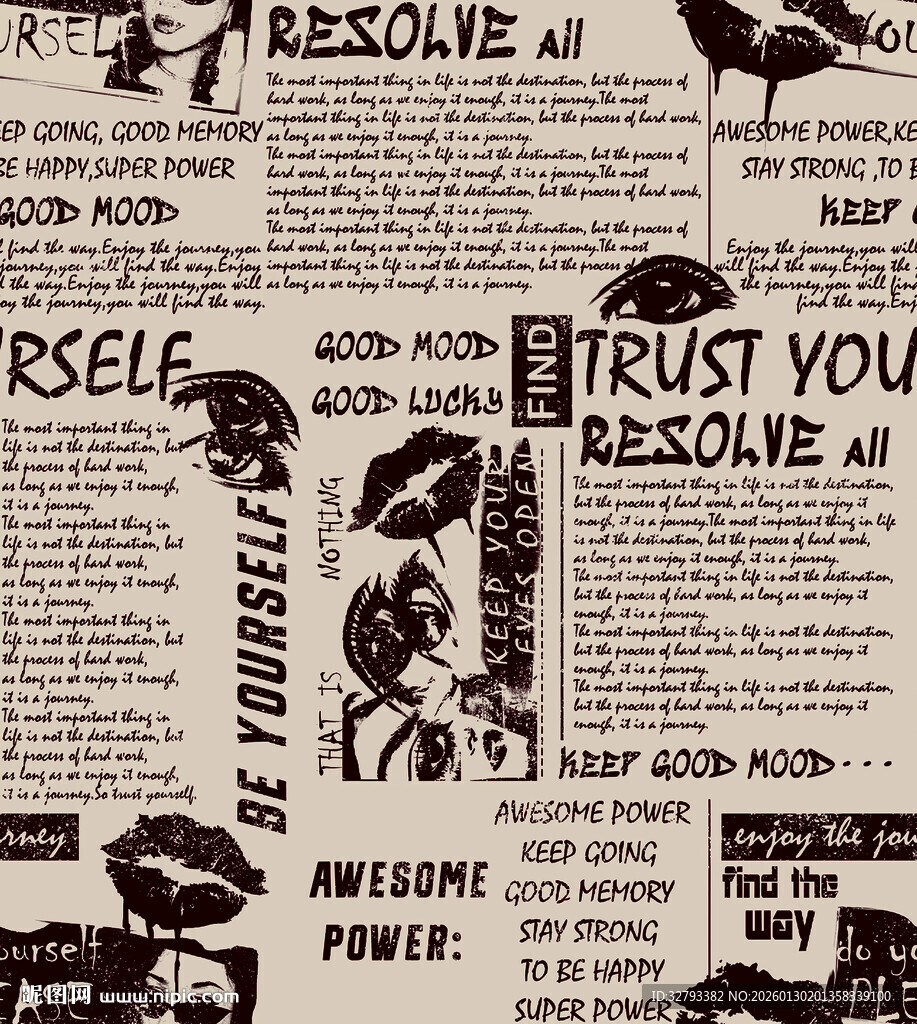 URSELF
RESOLVE All
The most important thing in life is not the destination, but the process of
hard work, as long as we enjoy it enough, it is a journey.The most
important thing in life is not the destination, but the process of hard work,
as long as we enjoy it enough, it is a journey.
The most important thing in life is not the destination, but the process of
hard work, as long as we enjoy it enough, it is a journey.The most
important thing in life is not the destination, but the process of hard work,
as long as we enjoy it enough, it is a journey.
The most important thing in life is not the destination, but the process of
hard work, as long as we enjoy it enough, it is a journey.The most
important thing in life is not the destination, but the process of
as long as we enjoy it enough, it is a journey.
EEP GOING, GOOD MEMORY
BE HAPPY,SUPER POWER
GOOD MOOD
l find the way.Enjoy the journey,you
journey,you will find the way.Enjoy
d the way.Enjoy the journey,you will
oy the journey,you will find the way.
YOU
AWESOME POWER,KE
STAY STRONG ,TO B
KEEP
Enjoy the journey,you will
will find the way.Enjoy the
the journey,you will find
find the way.Enj
URSELF
The most important thing in
life is not the destination, but
the process of hard work,
as long as we enjoy it enough,
it is a journey.
The most important thing in
life is not the destination, but
the process of hard work,
as long as we enjoy it enough,
it is a journey.
The most important thing in
life is not the destination, but
the process of hard work,
as long as we enjoy it enough,
it is a journey.
The most important thing in
life is not the destination, but
the process of hard work,
as long as we enjoy it enough,
it is a journey.So trust yourself.
BE YOURSELF
GOOD MOOD
GOOD LUCKY
FIND
THAT IS NOTHING
KEEP YOUR
EYES OPEN
TRUST YOU
RESOLVE All
The most important thing in life is not the destination,
but the process of hard work, as long as we enjoy it
enough, it is a journey.The most important thing in life
is not the destination, but the process of hard work,
as long as we enjoy it enough, it is a journey.
The most important thing in life is not the destination,
but the process of hard work, as long as we enjoy it
enough, it is a journey.
The most important thing in life is not the destination,
but the process of hard work, as long as we enjoy it
enough, it is a journey.
The most important thing in life is not the destination,
but the process of hard work, as long as we enjoy it
enough, it is a journey.
KEEP GOOD MOOD...
AWESOME POWER
KEEP GOING
GOOD MEMORY
STAY STRONG
TO BE HAPPY
SUPER POWER
AWESOME
POWER:
rney
enjoy the jou
find the
way
ourself
do yo
昵图网 www.nipic.com
ID:32793382 NO:20260130201358339100